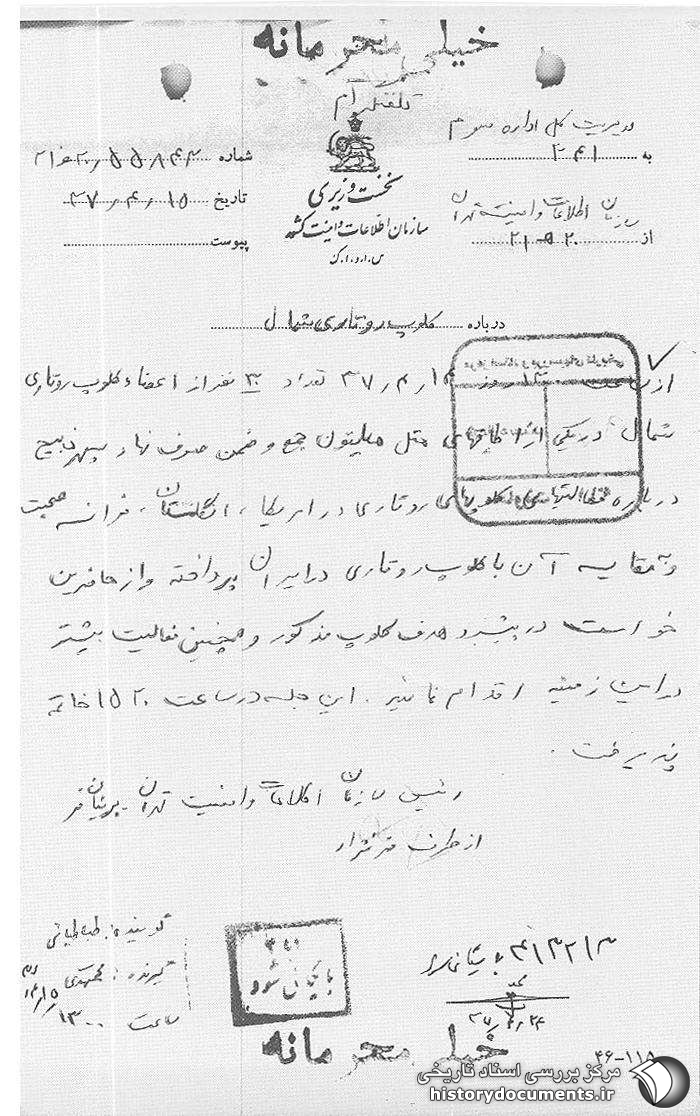 خیلی محرمانه
تلفنگرام
مدیریت کل اداره سوم
به ۳۴۱
شماره ۵۵۸۴۳
تاریخ ۳۷/۴/۱۵
نخست وزیری
سازمان اطلاعات و امنیت کشور
س.ا.و.ا.ک
سازمان اطلاعات و امنیت تهران
از ۲۰ ه ۲۱
پیوست
درباره کلوپ روتاری شمال
از ساعت روز ۳۷/۴/۱۴ تعداد ۳۰ نفر از اعضاء کلوپ روتاری
شمال در یکی از اطاقهای هتل هیلتون جمع و ضمن صرف نهار سپهر ذبیح
درباره فعالیتهای کلوپهای روتاری در امریکا، انگلستان، فرانسه صحبت
و بمقایسه آن با کلوپ روتاری در ایران پرداخته و از حاضرین
خواست در پیشبرد هدف کلوپ مذکور و همچنین فعالیت بیشتر
در این زمینه اقدام نمایند. این جلسه در ساعت ۱۵۲۰ خاتمه
پذیرفت.
رئیس سازمان اطلاعات و امنیت تهران
از طرف
گوینده: طباطبائی
گیرنده:
ساعت ۱۳۰۰
بایگانی شود
۳۷/۴/۲۴
خیلی محرمانه
۴۶-۱۱۸
مرکز بررسی اسناد تاریخی
historydocuments.ir